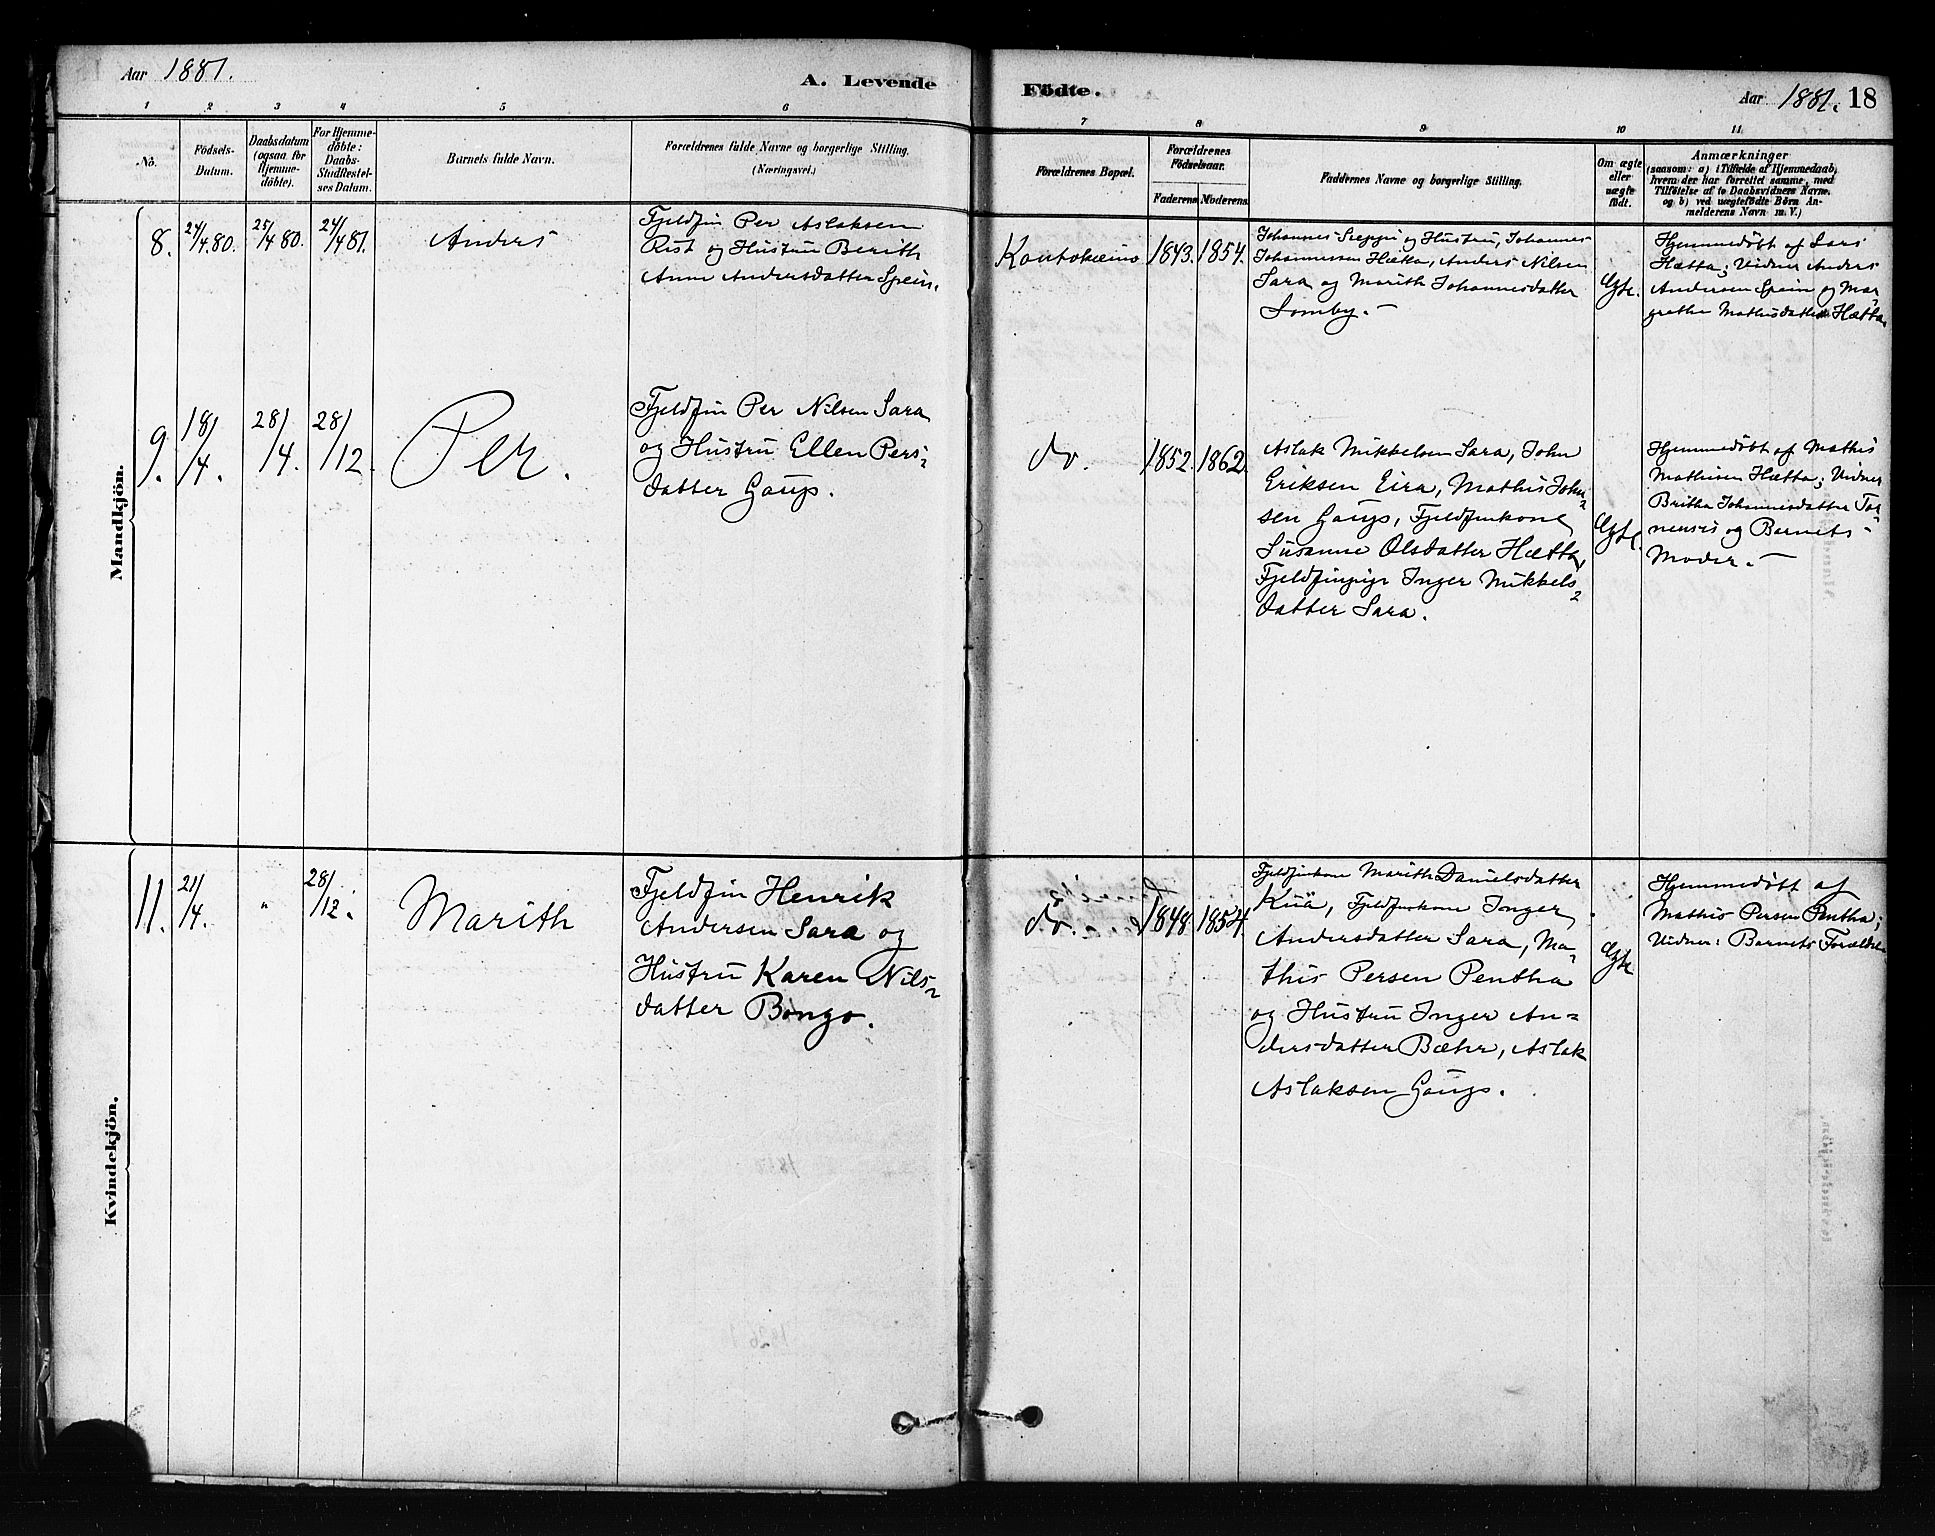 Aar 1881.
A. Levende
Fødte.
Aar 1881. 18
1 2 3 4 5 6 7 8 9 10 11
No.
Födsels-
Datum.
Daabsdatum
(ogsaa for
Hjemme-
döbte).
For Hjemme-
döbte:
Daabs-
Stadfæstel-
ses Datum.
Barnets fulde Navn.
Forældrenes fulde Navne og borgerlige Stilling.
(Næringsvei.)
Forældrenes Bopæl.
Forældrenes
Födselsaar.
Faderens Moderens
Faddernes Navne og borgerlige Stilling.
Om ægte
eller
uægte
födt.
Anmærkninger
(saasom: a) i Tilfælde af Hjemmedaab,
hvem der har forrettet samme, med
Tilföielse af to Daabsvidners Navne,
og b) ved uægtefödte Börn An-
melderens Navn m. V.)
Mandkjön.
8.
24/4.80.
25/4 80.
24/4 81.
Anders
Fjeldfin Per Aslaksen
Rist og Hustru Berith
Anne Andersdatter Spein.
Koutokeino
1843.
1854.
Johannes og Hustru, Johannes
Johannessen Hætta, Anders Nilsen
Sara og Marith Johannesdatter
Somby. -
Egte.
Hjemmedøbt af Lars
Hætta; Vidner Anders
Andersen Spein og Mar-
grethe Mathisdatter Hætta.
9.
18/4.
28/4.
28/12.
Per.
Fjeldfin Per Nilsen Sara
og Hustru Ellen Pers-
datter Gaup.
do.
1852.
1862.
Aslak Mikkelsen Sara, John
Eriksen Eira, Mathis John-
sen Gaup, Fjeldfinkone
Susanne Olsdatter Hætta,
Fjeldfinpige Inger Mikkels-
datter Sara.
Egte.
Hjemmedøbt af Mathis
Mathisen Hætta; Vidner
Britha Johannesdatter Tor-
nensis og Barnets
Moder. -
Kvindekjön.
11.
21/4.
"
28/12.
Marith
Fjeldfin Henrik
Andersen Sara og
Hustru Karen Nils-
datter Bongo.
do.
1848
1854.
Fjeldfinkone Marith Danielsdatter
Fjeldfinkone Inger
Andersdatter Sara, Ma-
this Persen Pentha
og Hustru Inger An-
dersdatter Bæhr, Aslak
Aslaksen Gaup.
Egte
Hjemmedøbt af
Mathis Persen Pentha;
Vidner: Barnets Forældre